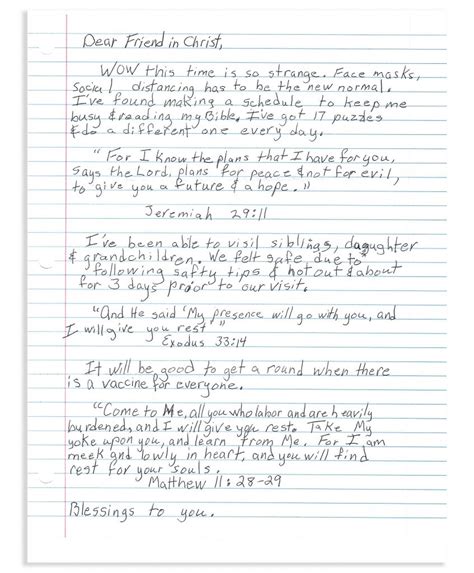 Dear Friend in Christ,
WOW this time is so strange. Face masks,
Social distancing has to be the new normal.
I've found making a schedule to keep me
busy & reading my Bible. I've got 17 puzzles
& do a different one every day.
"For I know the plans that I have for you,
says the Lord, plans for peace & not for evil,
to give you a future & a hope."
Jeremiah 29:11
I've been able to visit siblings, daughter
& grandchildren. We felt safe, due to
following safty tips & not out & about
for 3 days prior to our visit.
"And He said 'My presence will go with you, and
I will give you rest'"
Exodus 33:14
It will be good to get a round when there
is a vaccine for everyone.
"Come to Me, all you who labor and are heavily
burdened, and I will give you rest. Take My
yoke upon you, and learn from Me. For I am
meek and lowly in heart, and you will find
rest for your souls.
Matthew 11:28-29
Blessings to you.